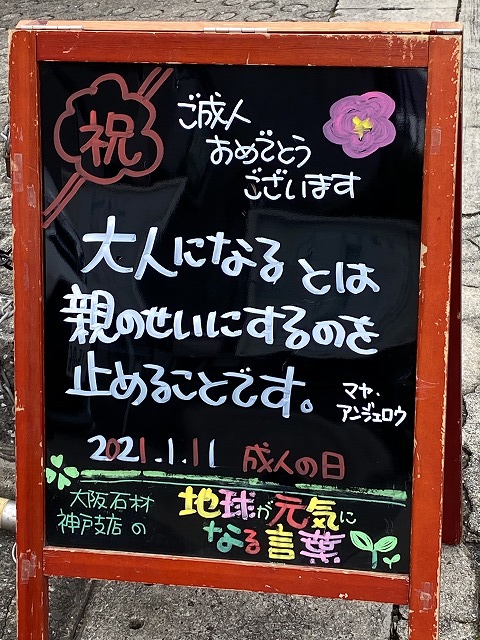 祝
ご成人
おめでとう
ございます
大人になるとは
親のせいにするのを
止めることです。
マヤ・
アンジェロウ
2021.1.11 成人の日
大阪石材
神戸支店の
地球が元気に
なる言葉